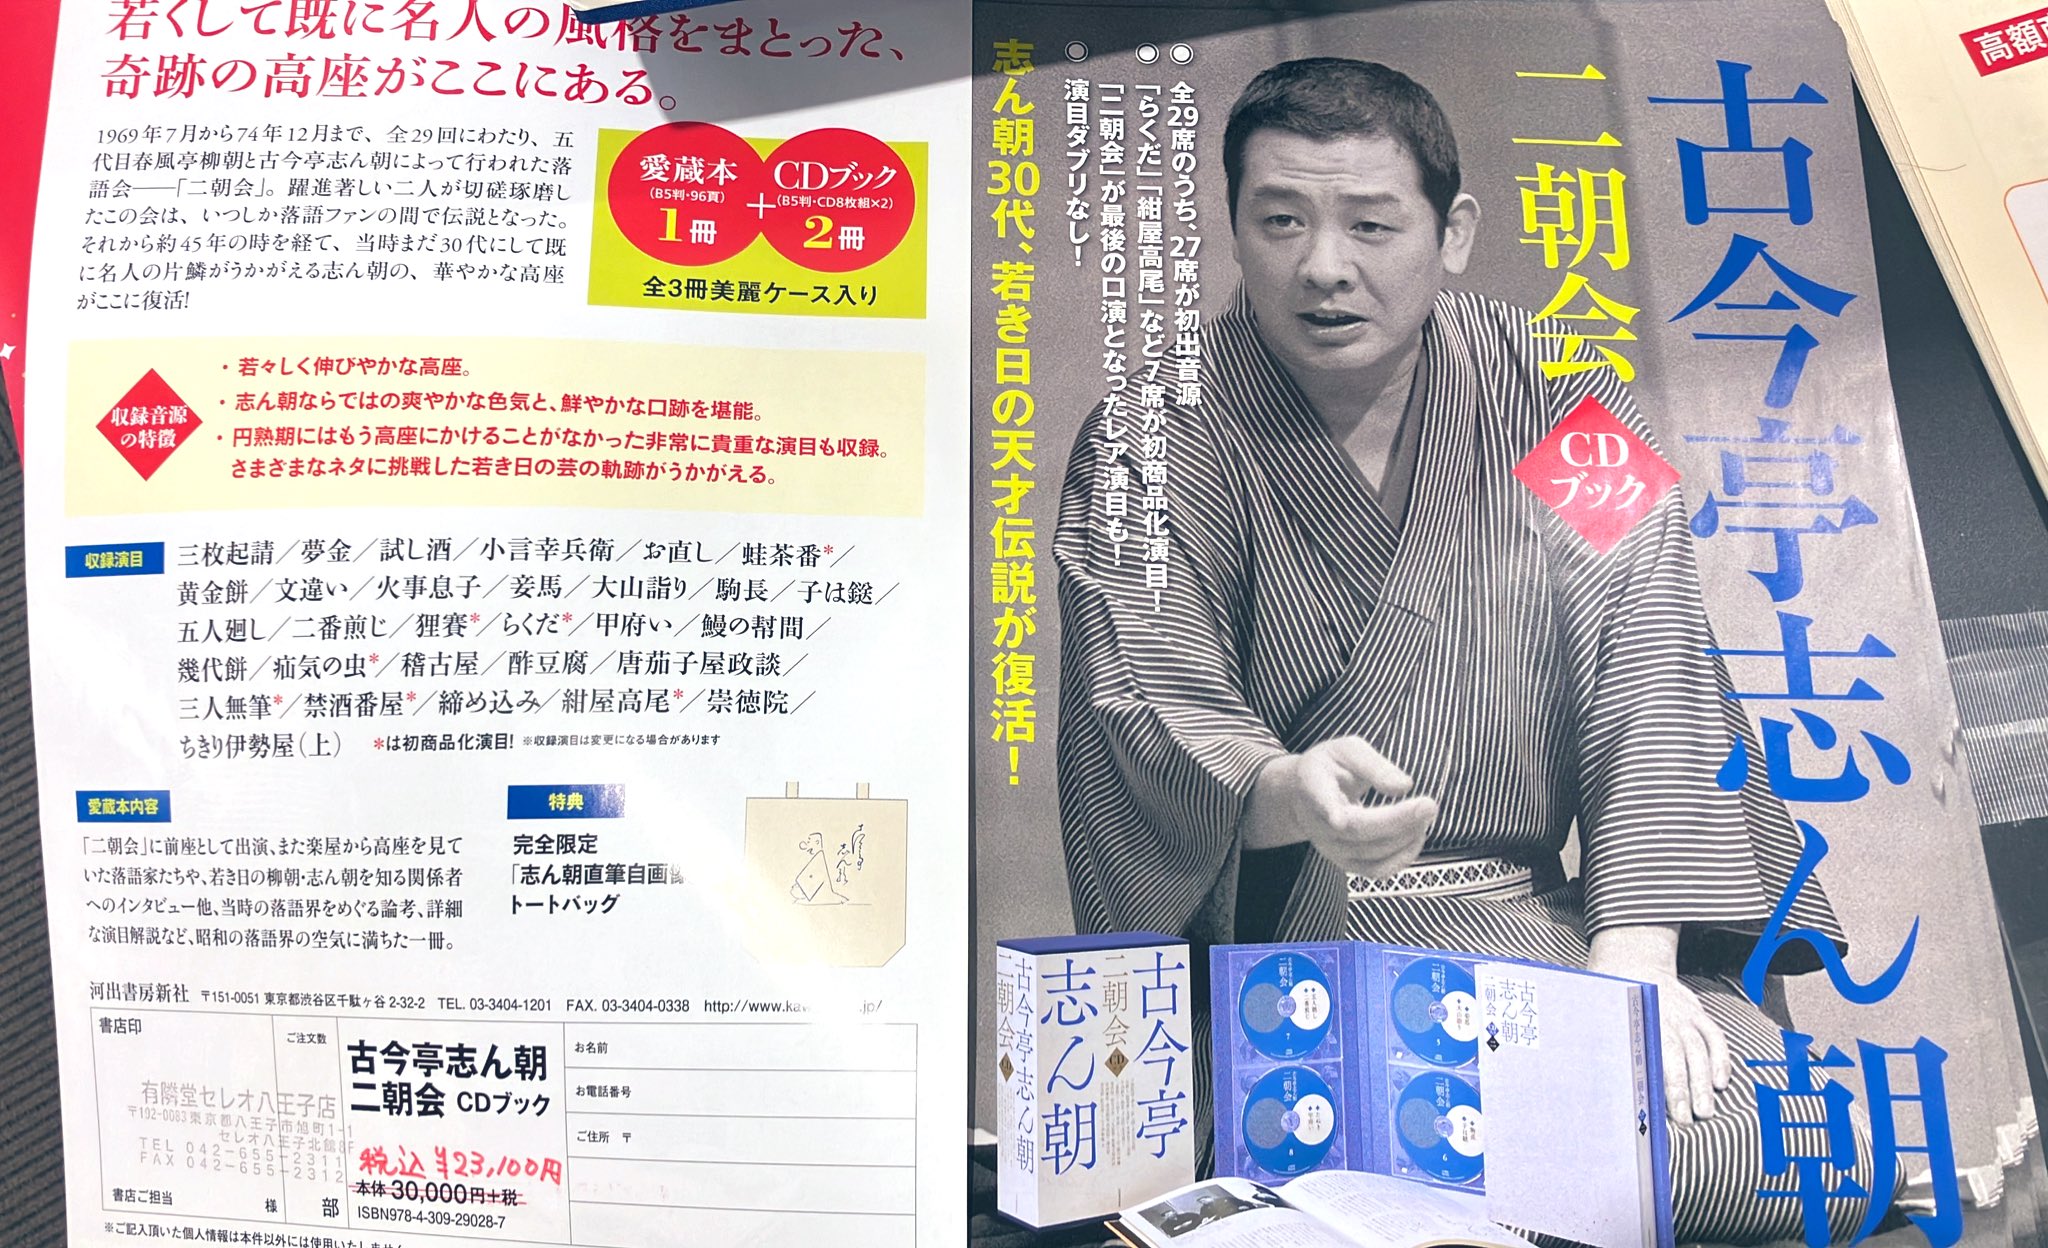 若くして既に名人の風格をまとった、
奇跡の高座がここにある。
1969年7月から74年12月まで、全29回にわたり、五
代目春風亭柳朝と古今亭志ん朝によって行われた落
語会——「二朝会」。躍進著しい二人が切磋琢磨し
たこの会は、いつしか落語ファンの間で伝説となった。
それから約45年の時を経て、当時まだ30代にして既
に名人の片鱗がうかがえる志ん朝の、華やかな高座
がここに復活!
愛蔵本
(B5判・96頁)
1冊
+
CDブック
(B5判・CD8枚組×2)
2冊
全3冊美麗ケース入り
収録音源
の特徴
・若々しく伸びやかな高座。
・志ん朝ならではの爽やかな色気と、鮮やかな口跡を堪能。
・円熟期にはもう高座にかけることがなかった非常に貴重な演目も収録。
さまざまなネタに挑戦した若き日の芸の軌跡がうかがえる。
収録演目
三枚起請/夢金/試し酒/小言幸兵衛/お直し/蛙茶番*/
黄金餅/文違い/火事息子/妾馬/大山詣り/駒長/子は鎹/
五人廻し/二番煎じ/狸賽*/らくだ*/甲府い/鰻の幇間/
幾代餅/疝気の虫*/稽古屋/酢豆腐/唐茄子屋政談/
三人無筆*/禁酒番屋*/締め込み/紺屋高尾*/崇徳院/
ちきり伊勢屋(上) *は初商品化演目! ※収録演目は変更になる場合があります
愛蔵本内容
「二朝会」に前座として出演、また楽屋から高座を見て
いた落語家たちや、若き日の柳朝・志ん朝を知る関係者
へのインタビュー他、当時の落語界をめぐる論考、詳細
な演目解説など、昭和の落語界の空気に満ちた一冊。
特典
完全限定
「志ん朝直筆自画像
トートバッグ
河出書房新社 〒151-0051 東京都渋谷区千駄ヶ谷2-32-2 TEL. 03-3404-1201 FAX. 03-3404-0338 http://www.kaw .jp/
書店印
有隣堂セレオ八王子店
〒192-0083東京都八王子市旭町1-1
セレオ八王子北館8F
TEL 042-655-2311
FAX 042-655-2312
書店ご担当
様
ご注文数
部
古今亭志ん朝
二朝会 CDブック
税込¥23,100円
本体30,000円+税
ISBN978-4-309-29028-7
お名前
お電話番号
ご住所 〒
※ご記入頂いた個人情報は本件以外には使用いたしません
古今亭志ん朝
二朝会
CD
ブック
◉全29席のうち、27席が初出音源
◉「らくだ」「紺屋高尾」など7席が初商品化演目!
「二朝会」が最後の口演となったレア演目も!
◉演目ダブりなし!
志ん朝30代、若き日の天才伝説が復活!
古今亭
志ん朝
二朝会
CD
古今亭志ん朝
二朝会
二朝会
7
二朝会
8
二朝会
5
二朝会
6
古今亭
志ん朝
二朝会
高額